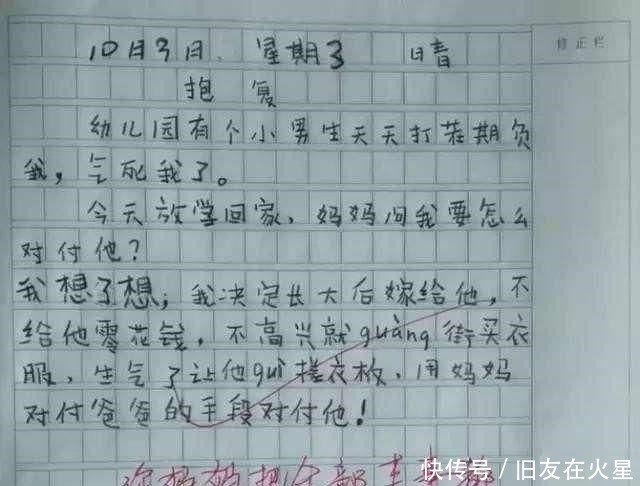 10月3日、星期3 晴
修正栏
抱复
幼儿园有个小男生天天打茬期负
我，气死我了。
今天放学回家，妈妈问我要怎么
对付他？
我想了想，我决定长大后嫁给他，不
给他零花钱，不高兴就guàng街买衣
服，生气了让他guì搓衣板，用妈妈
对付爸爸的手段对付他！
快传号/旧友在火星